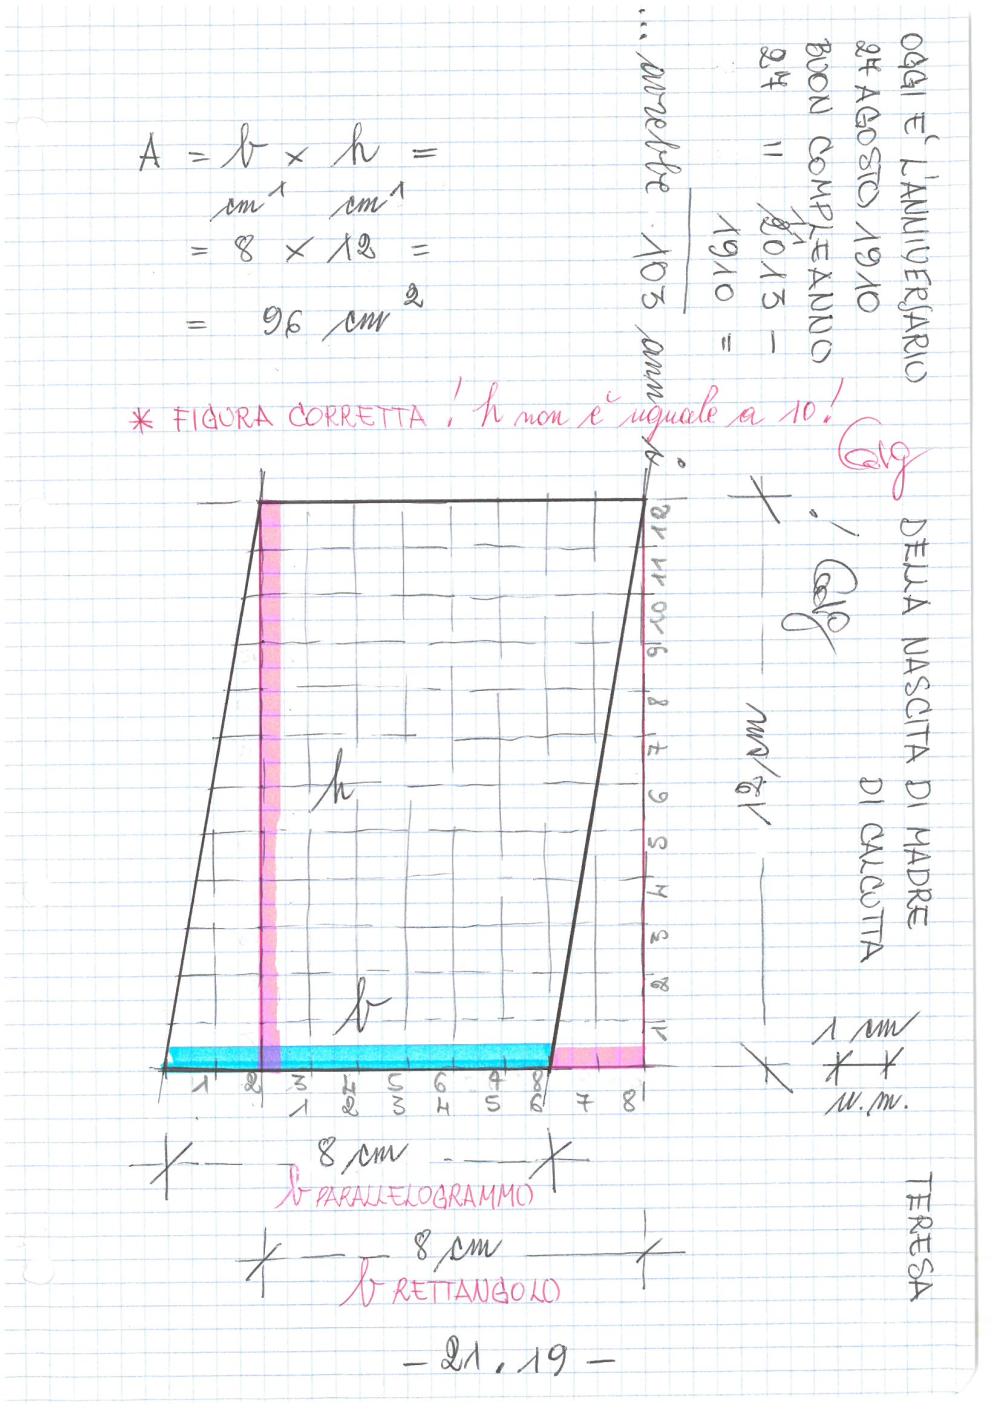 OGGI E' L'ANNIVERSARIO DELLA NASCITA DI MADRE TERESA
27 AGOSTO 1910 DI CALCUTTA
BUON COMPLEANNO !
27 = 2013 -
1910 =
... avrebbe 103 anni.
A = b x h =
cm¹ cm¹
= 8 x 12 =
= 96 cm²
* FIGURA CORRETTA! h non è uguale a 10!
12 11 10 9 8 7 6 5 4 3 2 1
12 cm
h
b
1 cm
u.m.
1 2 3 4 5 6 7 8
1 2 3 4 5 6 7 8
8 cm
b PARALLELOGRAMMO
8 cm
b RETTANGOLO
- 21.19 -